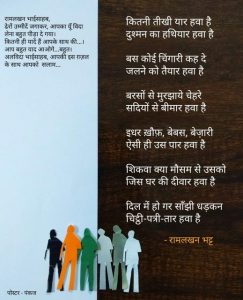 रामलखन भाईसाहब,
ढेरों उम्मीदें जगाकर, आपका यूँ विदा
लेना बहुत पीड़ा दे गया।
कितनी ही यादें हैं आपके साथ की...।
आप बहुत याद आओगे...बहुत।
अलविदा भाईसाहब, आपकी इस ग़ज़ल
के साथ आपको सलाम...
कितनी तीखी यार हवा है
दुश्मन का हथियार हवा है
बस कोई चिंगारी कह दे
जलने को तैयार हवा है
बरसों से मुरझाये चेहरे
सदियों से बीमार हवा है
इधर ख़ौफ़, बेबस, बेज़ारी
ऐसी ही उस पार हवा है
शिकवा क्या मौसम से उसको
जिस घर की दीवार हवा है
दिल में हो गर साँझी धड़कन
चिट्ठी-पत्री-तार हवा है
- रामलखन भट्ट
पोस्टर - पंकज